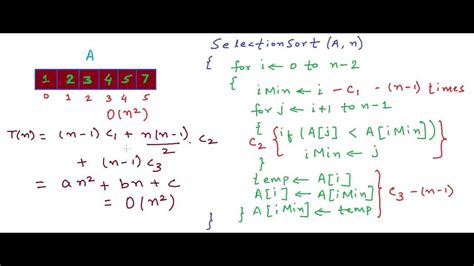 A
1 2 3 4 5 7
0 1 2 3 4 5
O(n²)
T(n) = (n-1) c₁ + n(n-1)/2 . c₂
+ (n-1) c₃
= an² + bn + c
= O(n²)
SelectionSort (A, n)
{
for i ← 0 to n-2
{
iMin ← i - c₁ - (n-1) times
for j ← i+1 to n-1
c₂ { if (A[j] < A[iMin])
iMin ← j }
temp ← A[i]
A[i] ← A[iMin] } c₃ - (n-1)
} A[iMin] ← temp
}